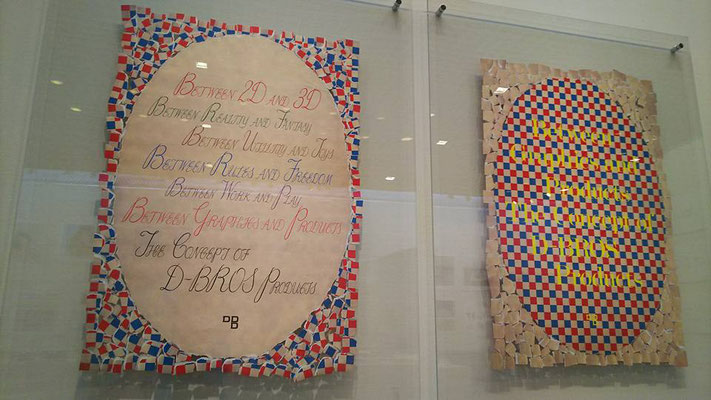 BETWEEN 2D AND 3D
BETWEEN REALITY AND FANTASY
BETWEEN UTILITY AND TOYS
BETWEEN RULES AND FREEDOM
BETWEEN WORK AND PLAY
BETWEEN GRAPHICS AND PRODUCTS
THE CONCEPT OF
D-BROS PRODUCTS
DB
Between
Graphics and
Products
The Concept of
D-BROS
Products
DB